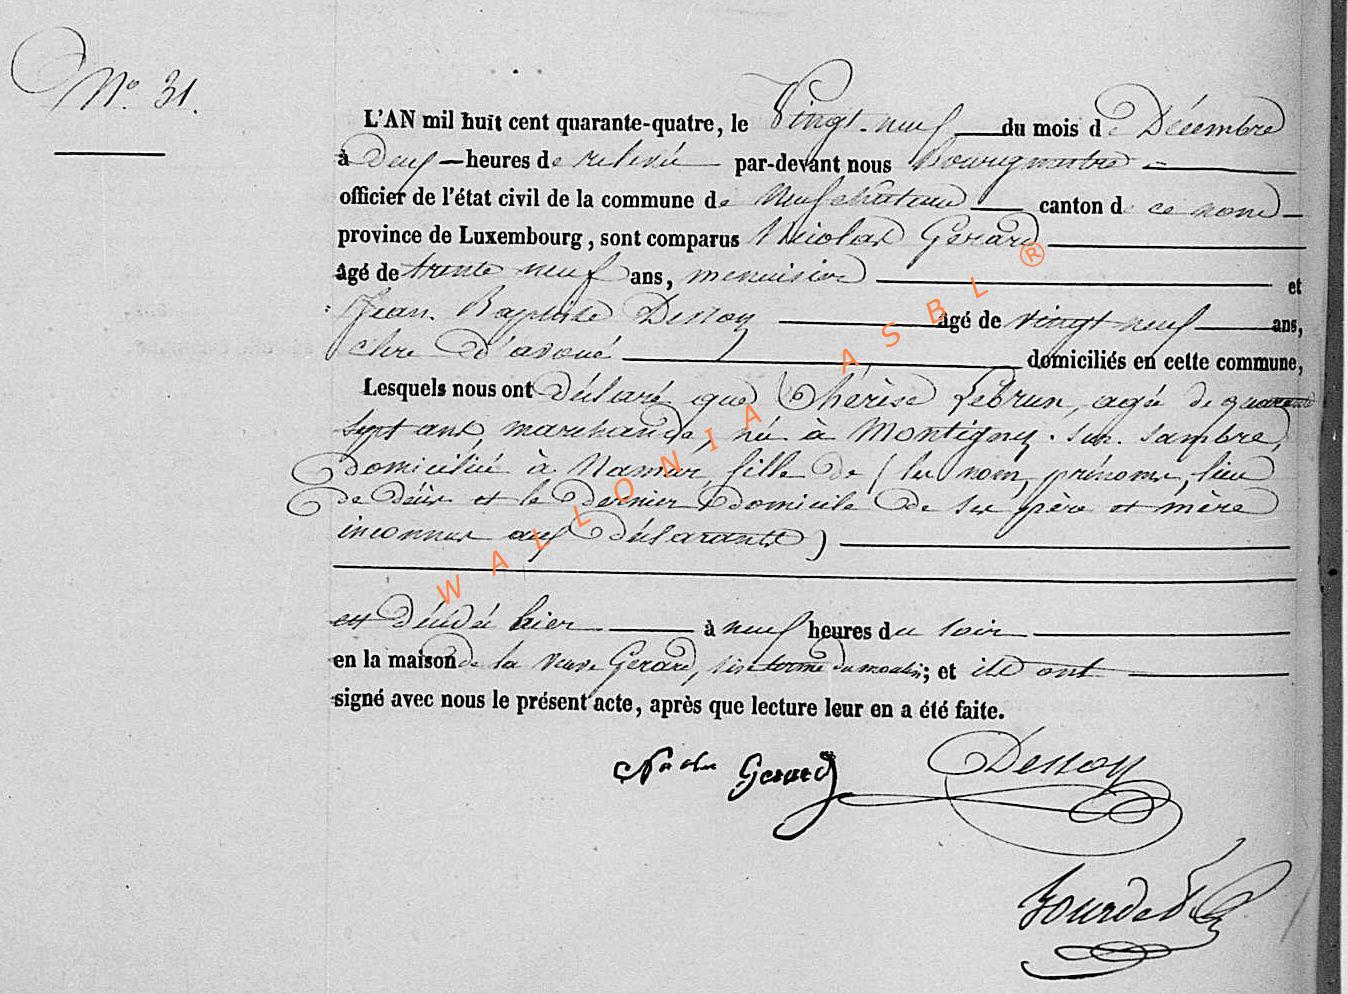 N° 31.
L'AN mil huit cent quarante-quatre, le Vingt-neuf du mois de Décembre
à deux heures de relevée par-devant nous bourgmestre
officier de l'état civil de la commune de Neufchâteau canton de ce nom
province de Luxembourg, sont comparus Nicolas Gerard
âgé de trente neuf ans, menuisier et
Jean Baptiste Dessoy âgé de vingt neuf ans,
clerc d'avoué domiciliés en cette commune,
Lesquels nous ont déclaré que Thérèse Lebrun, agée de quarante
sept ans, marchande, née à Montigny-sur-Sambre,
domiciliée à Namur, fille de (les nom, prénoms, lieu
de décès et le dernier domicile de ses père et mère
inconnus aux déclarants)
est décédée hier à neuf heures du soir
en la maison de la veuve Gerard, sise du moulin; et ils ont
signé avec nous le présent acte, après que lecture leur en a été faite.
Nicolas Gerard Dessoy
WALLONIA ASBL ®